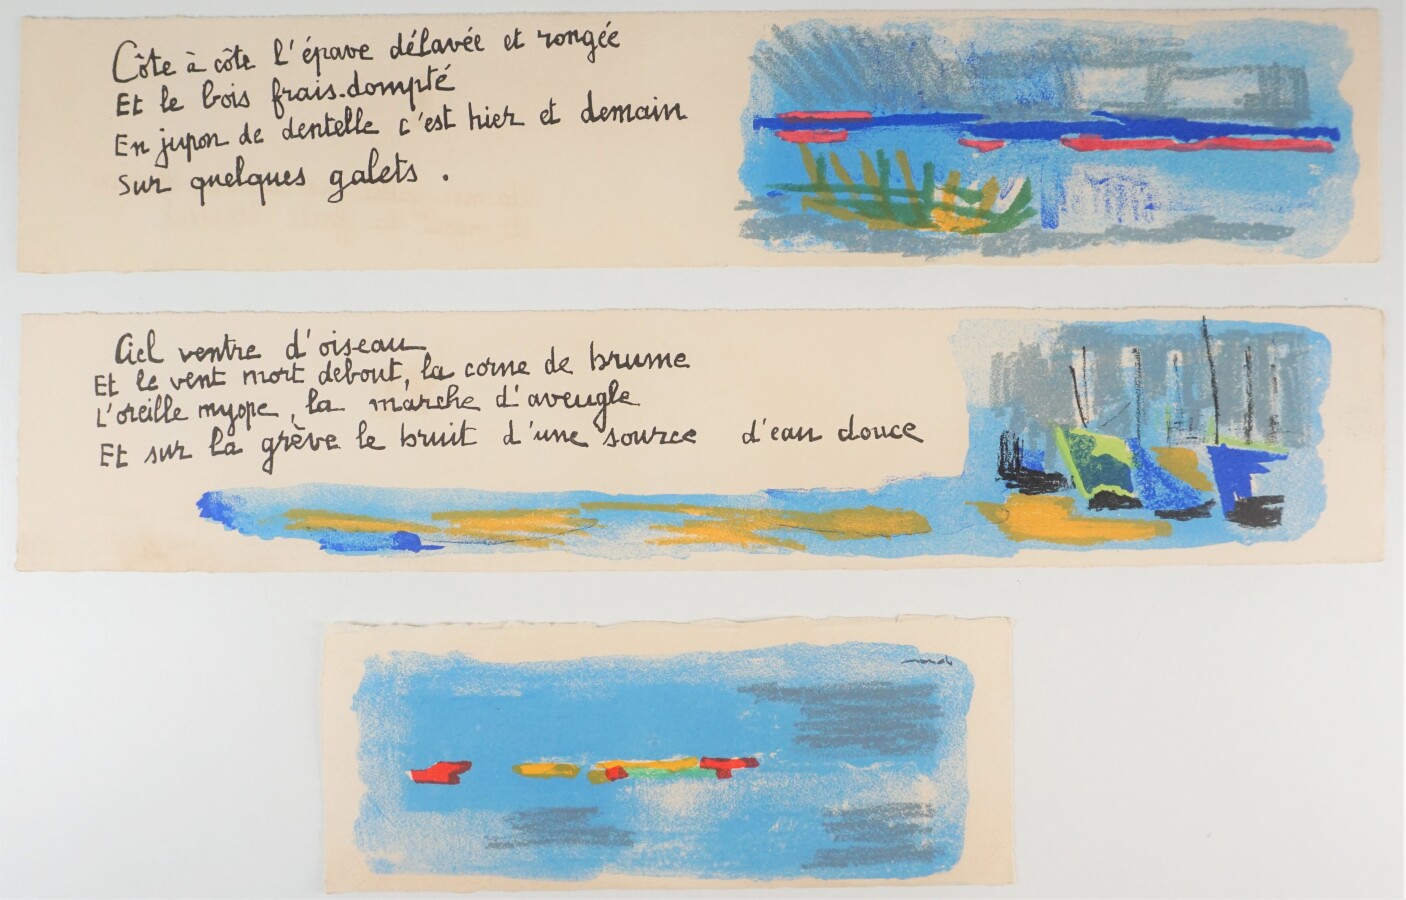 Côte à côte l'épave délavée et rongée
Et le bois frais.dompté
En jupon de dentelle c'est hier et demain
Sur quelques galets .
Ciel ventre d'oiseau
Et le vent mort debout, la corne de brume
L'oreille myope, la marche d'aveugle
Et sur la grève le bruit d'une source d'eau douce